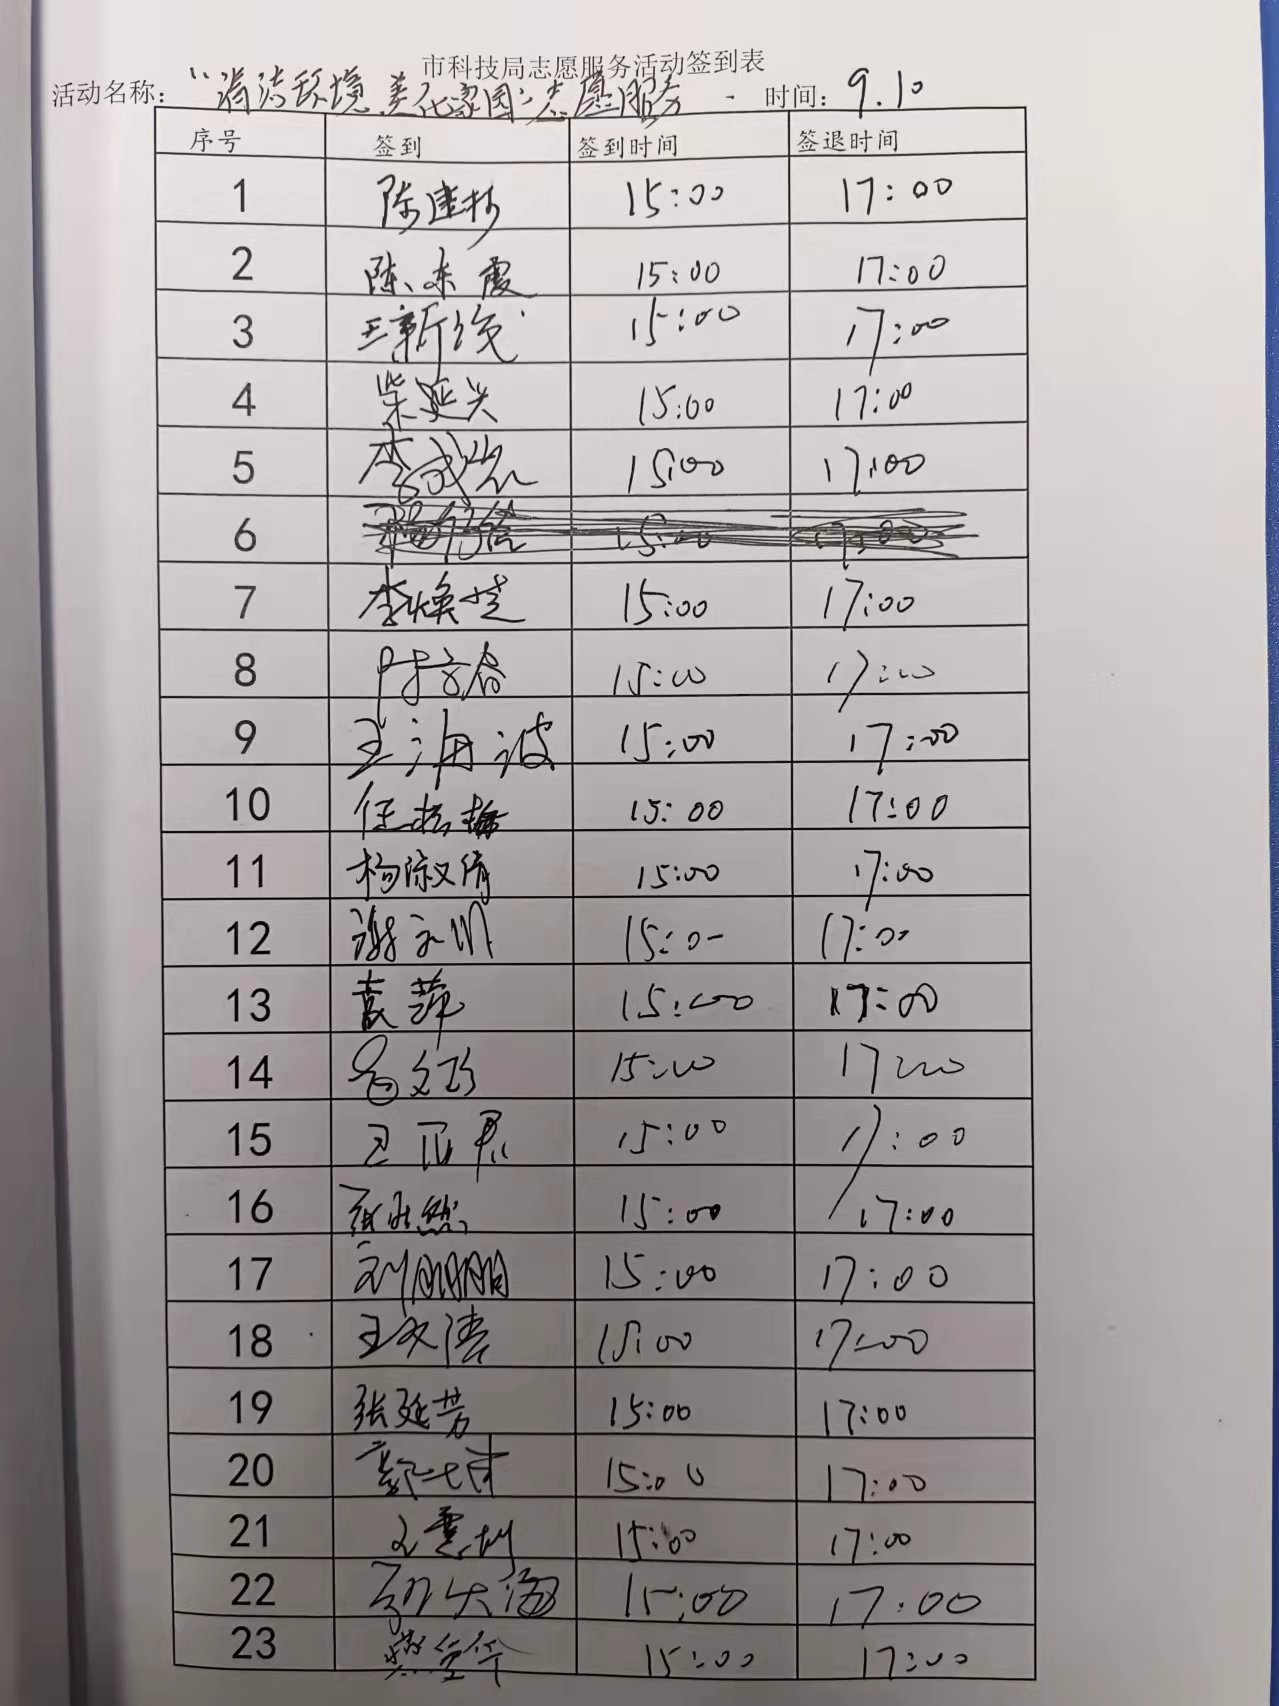 市科技局志愿服务活动签到表
活动名称：“清洁环境 美化家园”志愿服务 - 时间：9.10
序号 签到 签到时间 签退时间
1 陈建彬 15:00 17:00
2 陈东霞 15:00 17:00
3 王新俊 15:00 17:00
4 柴延兴 15:00 17:00
5 李成岩 15:00 17:00
6 15:00 17:00
7 李焕芝 15:00 17:00
8 15:00 17:00
9 王海波 15:00 17:00
10 任 15:00 17:00
11 杨淑倩 15:00 17:00
12 谢 15:00 17:00
13 袁萍 15:00 17:00
14 吕文 15:00 17:00
15 王亚君 15:00 17:00
16 然 15:00 17:00
17 刘朋朋 15:00 17:00
18 王文涛 15:00 17:00
19 张延芳 15:00 17:00
20 15:00 17:00
21 15:00 17:00
22 大海 15:00 17:00
23 15:00 17:00